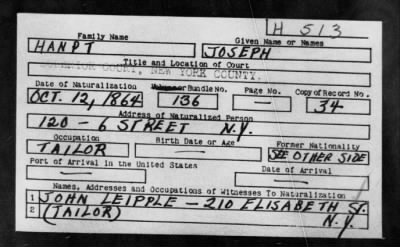 H 513
Family Name Given Name or Names
HANPT JOSEPH
Title and Location of Court
SUPERIOR COURT, NEW YORK COUNTY.
Date of Naturalization Volume or Bundle No. Page No. Copy of Record No.
OCT. 12, 1864 136 — 34
Address of Naturalized Person
120 — 6 STREET N.Y.
Occupation Birth Date or Age Former Nationality
TAILOR — SEE OTHER SIDE
Port of Arrival in the United States Date of Arrival
— —
Names, Addresses and Occupations of Witnesses To Naturalization
1 JOHN LEIPPLE — 210 ELISABETH ST.
2 (TAILOR) N.Y.